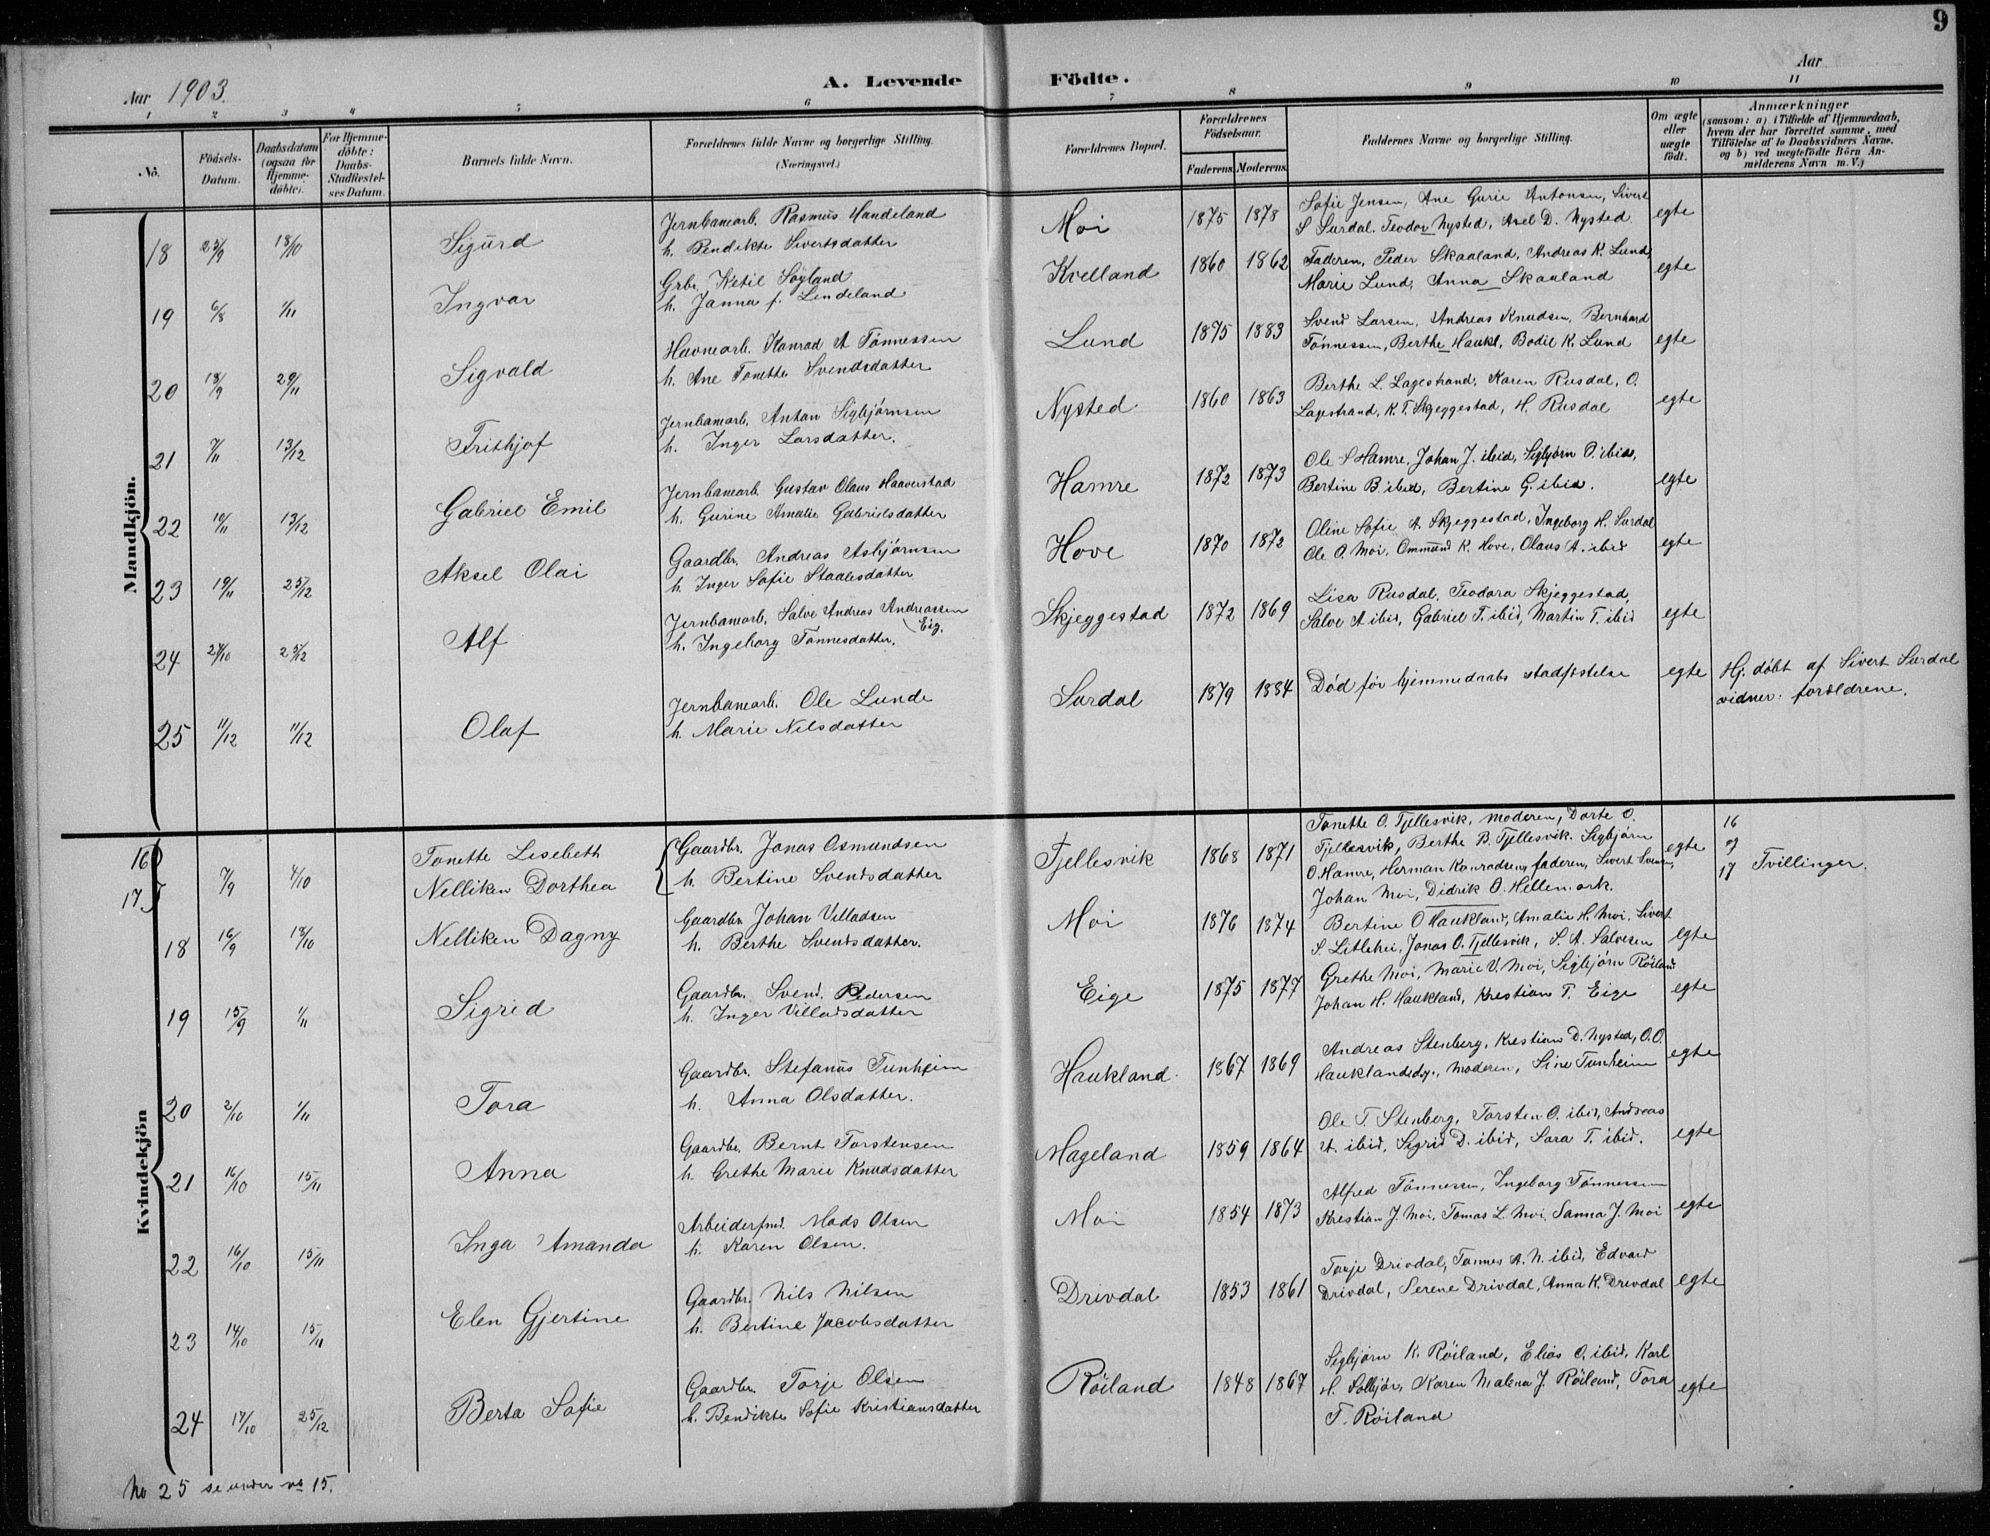 9
Aar 1903.
A. Levende Födte.
Aar
1 2 3 4 5 6 7 8 9 10 11
No.
Födsels-Datum.
Daabsdatum (ogsaa for Hjemme-döbte).
For Hjemme-döbte: Daabs-Stadfæstel-ses Datum.
Barnets fulde Navn.
Forældrenes fulde Navne og borgerlige Stilling.
(Næringsvei.)
Forældrenes Bopæl.
Forældrenes Födselsaar.
Faderens. Moderens.
Faddernes Navne og borgerlige Stilling.
Om ægte eller uægte födt.
Anmærkninger
(saasom: a) i Tilfælde af Hjemmedaab, hvem der har forrettet samme, med Tilföielse af to Daabsvidners Navne, og b) ved uægtefödte Börn An-melderens Navn m. V.)
Mandkjön.
18 23/9 18/10 Sigurd Jernbanearb. Rasmus Handeland
h. Bendikte Sivertsdatter
Moi 1875 1878 Sofie Jensen, Ane Gurie Antonsen, Sivert
S Surdal. Teodor Nysted, Axel D. Nysted egte
19 6/8 1/11 Ingvar Grbr. Ketil Søyland
h. Janna f. Lindeland
Kvelland 1860 1862 Faderen, Peder Skaaland, Andreas K. Lund,
Marie Lund, Anna Skaaland egte
20 18/9 29/11 Sigvald Havnearb. Konrad A Tønnessen
h. Ane Tonette Svendsdatter
Lund 1875 1883 Svend Larsen, Andreas Knudsen, Bernhard
Tønnessen, Berthe Haukl, Bodil K. Lund egte
21 7/11 13/12 Frithjof Jernbanearb. Anton Sigbjørnsen
h. Inger Larsdatter.
Nysted 1860 1863 Berthe L. Lagestrand, Karen Rusdal, O.
Lagestrand, K. T. Skjeggestad, H. Rusdal egte
22 10/11 13/12 Gabriel Emil Jernbanearb. Gustav Olaus Haaverstad
h. Gurine Amalie Gabrielsdatter
Hamre 1872 1873 Ole S Hamre, Johan J. ibid, Sigbjørn O. ibid,
Bertine B. ibid, Bertine G. ibid. egte
23 19/11 25/12 Aksel Olai Gaardbr. Andreas Asbjørnsen
h. Inger Sofie Staalesdatter
Hove 1870 1872 Oline Sofie A. Skjeggestad, Ingeborg H. Surdal
Ole O. Moi, Ommund K. Hove, Olaus A. ibid egte
24 24/10 25/12 Alf Jernbanearb. Salve Andreas Andreassen
Eig.
h. Ingeborg Tønnesdatter.
Skjeggestad 1872 1869 Lisa Rusdal, Teodora Skjeggestad,
Salve A ibid, Gabriel T. ibid, Martin T. ibid egte
25 11/12 11/12 Olaf Jernbanearb. Ole Lunde
h. Marie Nilsdatter
Surdal 1879 1884 Død før hjemmedaabs stadfæstelse egte Hj. døbt af Sivert Surdal
vidner: forældrene.
Kvindekjön
16 17 7/9 4/10 Tonette Lisebeth
Nelliken Dorthea
Gaardbr. Jonas Osmundsen
h. Bertine Svendsdatter
Fjellesvik 1868 1871 Tonette O. Fjellesvik, moderen, Dorte O.
Fjellesvik, Berthe B. Fjellesvik. Sigbjørn
O Hamre, Herman Konradsen, faderen, Sivert Svensen,
Johan Moi, Didrik O. Hellemark. egte 16 og 17 Tvillinger.
18 16/9 18/10 Nelliken Dagny Gaardbr Johan Villadsen
h. Berthe Svendsdatter.
Moi 1876 1874 Bertine O Haukland, Amalie H. Moi, Sivert
S. Litlehei, Jonas O. Fjellesvik, S. A. Salvesen egte
19 15/9 1/11 Sigrid Gaardbr. Svend Pedersen
h. Inger Villadsdatter
Eige 1875 1877 Grethe Moi, Marie V. Moi, Sigbjørn Røiland
Johan H. Haukland, Kristian T. Eige egte
20 2/10 1/11 Tora Gaardbr. Stefanus Tunheim
h. Anna Olsdatter.
Haukland. 1867 1869 Andreas Stenberg, Kristian D. Nysted, O. O.
Hauklandsdy., moderen, Sine Tunheim egte
21 16/10 15/11 Anna Gaardbr. Bernt Torstensen
h. Grethe Marie Knudsdatter
Mageland 1859 1864 Ole T. Stenberg, Torsten O. ibid, Andreas
A. ibid, Sigrid D. ibid, Sara T. ibid. egte
22 16/10 15/11 Inga Amanda Arbeiderfmd. Mads Olsen
h. Karen Olsen.
Moi 1854 1873 Alfred Tønnessen, Ingeborg Tønnessen
Kristian J. Moi, Tomas L. Moi, Sanna J. Moi egte
23 14/10 15/11 Elen Gjertine Gaardbr. Nils Nilsen
h. Bertine Jacobsdatter
Drivdal 1853 1861 Torje Drivdal, Tønnes A. N. ibid, Edvard
Drivdal, Serene Drivdal, Anna K. Drivdal egte
24 17/10 25/12 Berta Sofie Gaardbr. Torje Olsen
h. Bendikte Sofie Kristiansdatter
Røiland 1848 1867 Sigbjørn K. Røiland, Elias O. ibid, Karl
H. Solbjør, Karen Malena J. Røiland, Tora
T. Røiland egte
No 25 se under no 15.